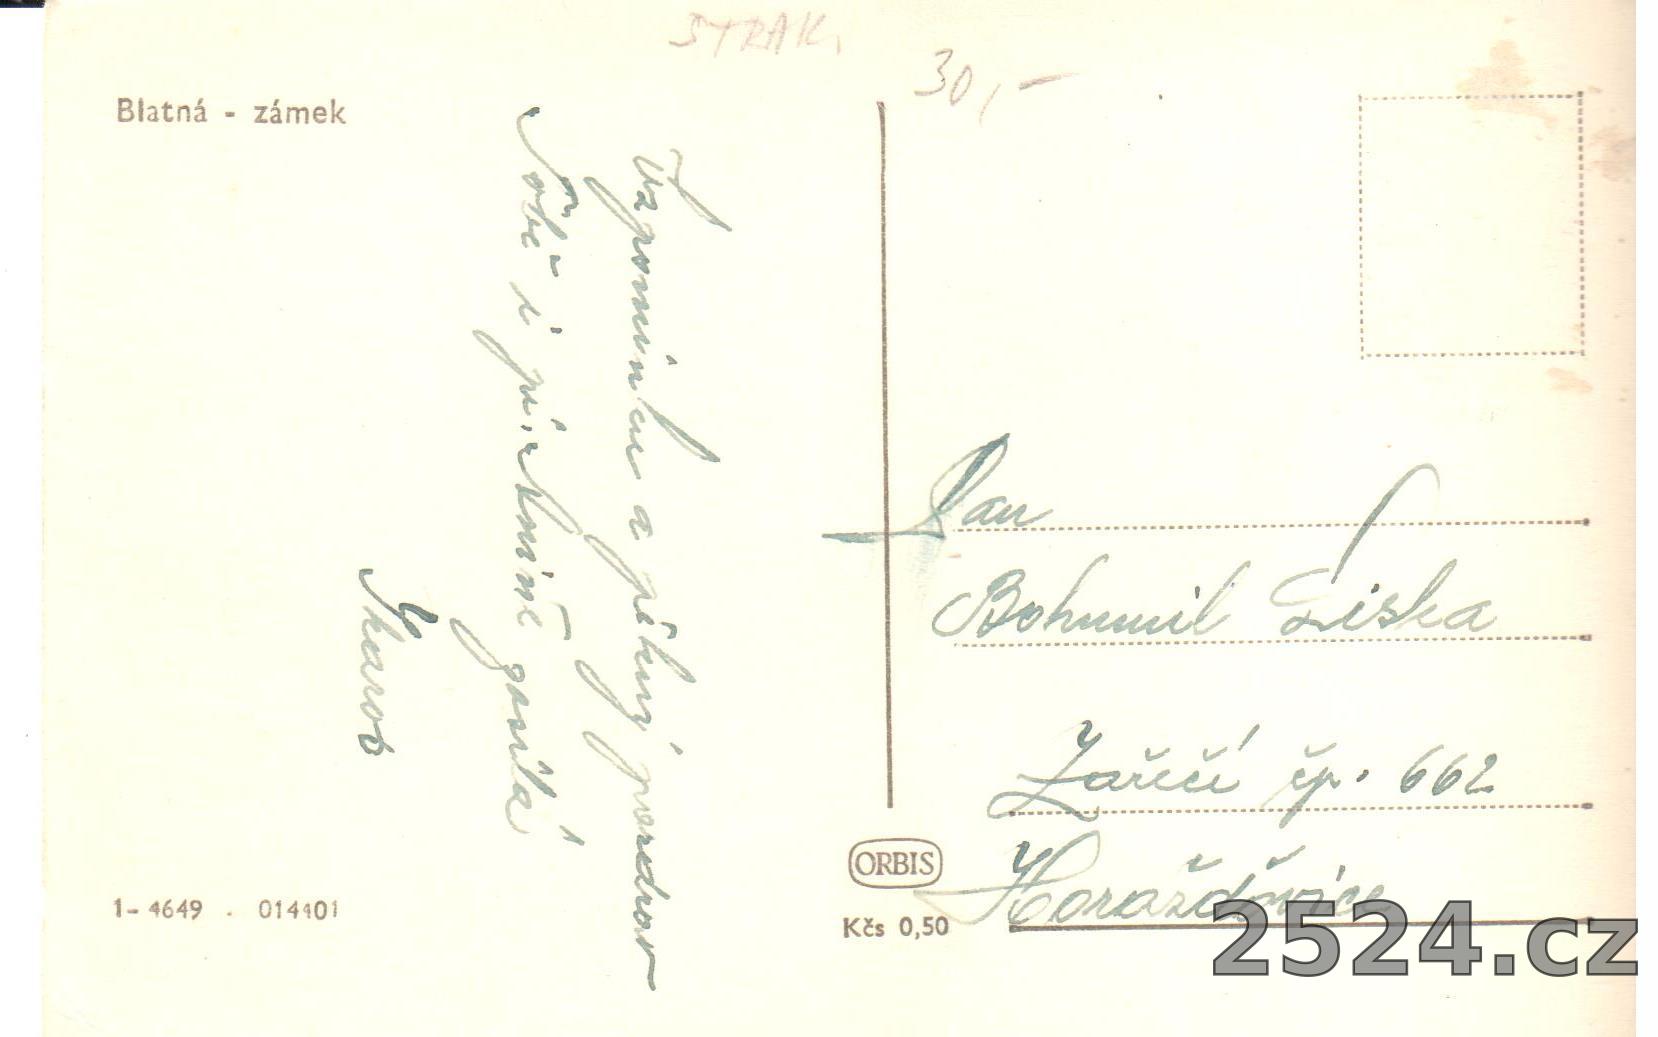 STRAK.
30,-
Blatná - zámek
Vzpomínku a pěkný pozdrav
Tobě i příkmině posílá
Pan
Bohumil Liška
Zářečí čp. 662
Horažďovice
ORBIS
Kčs 0,50
1-4649 . 014401
2524.cz